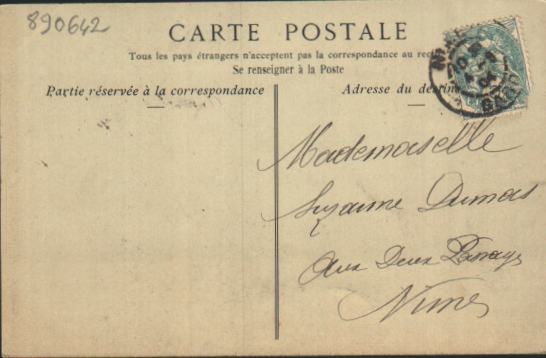 890642
CARTE POSTALE
Tous les pays étrangers n'acceptent pas la correspondance au rect
Se renseigner à la Poste
Partie réservée à la correspondance
Adresse du destin
Mademoiselle
Suzanne Dumas
Aux Deux
Nimes